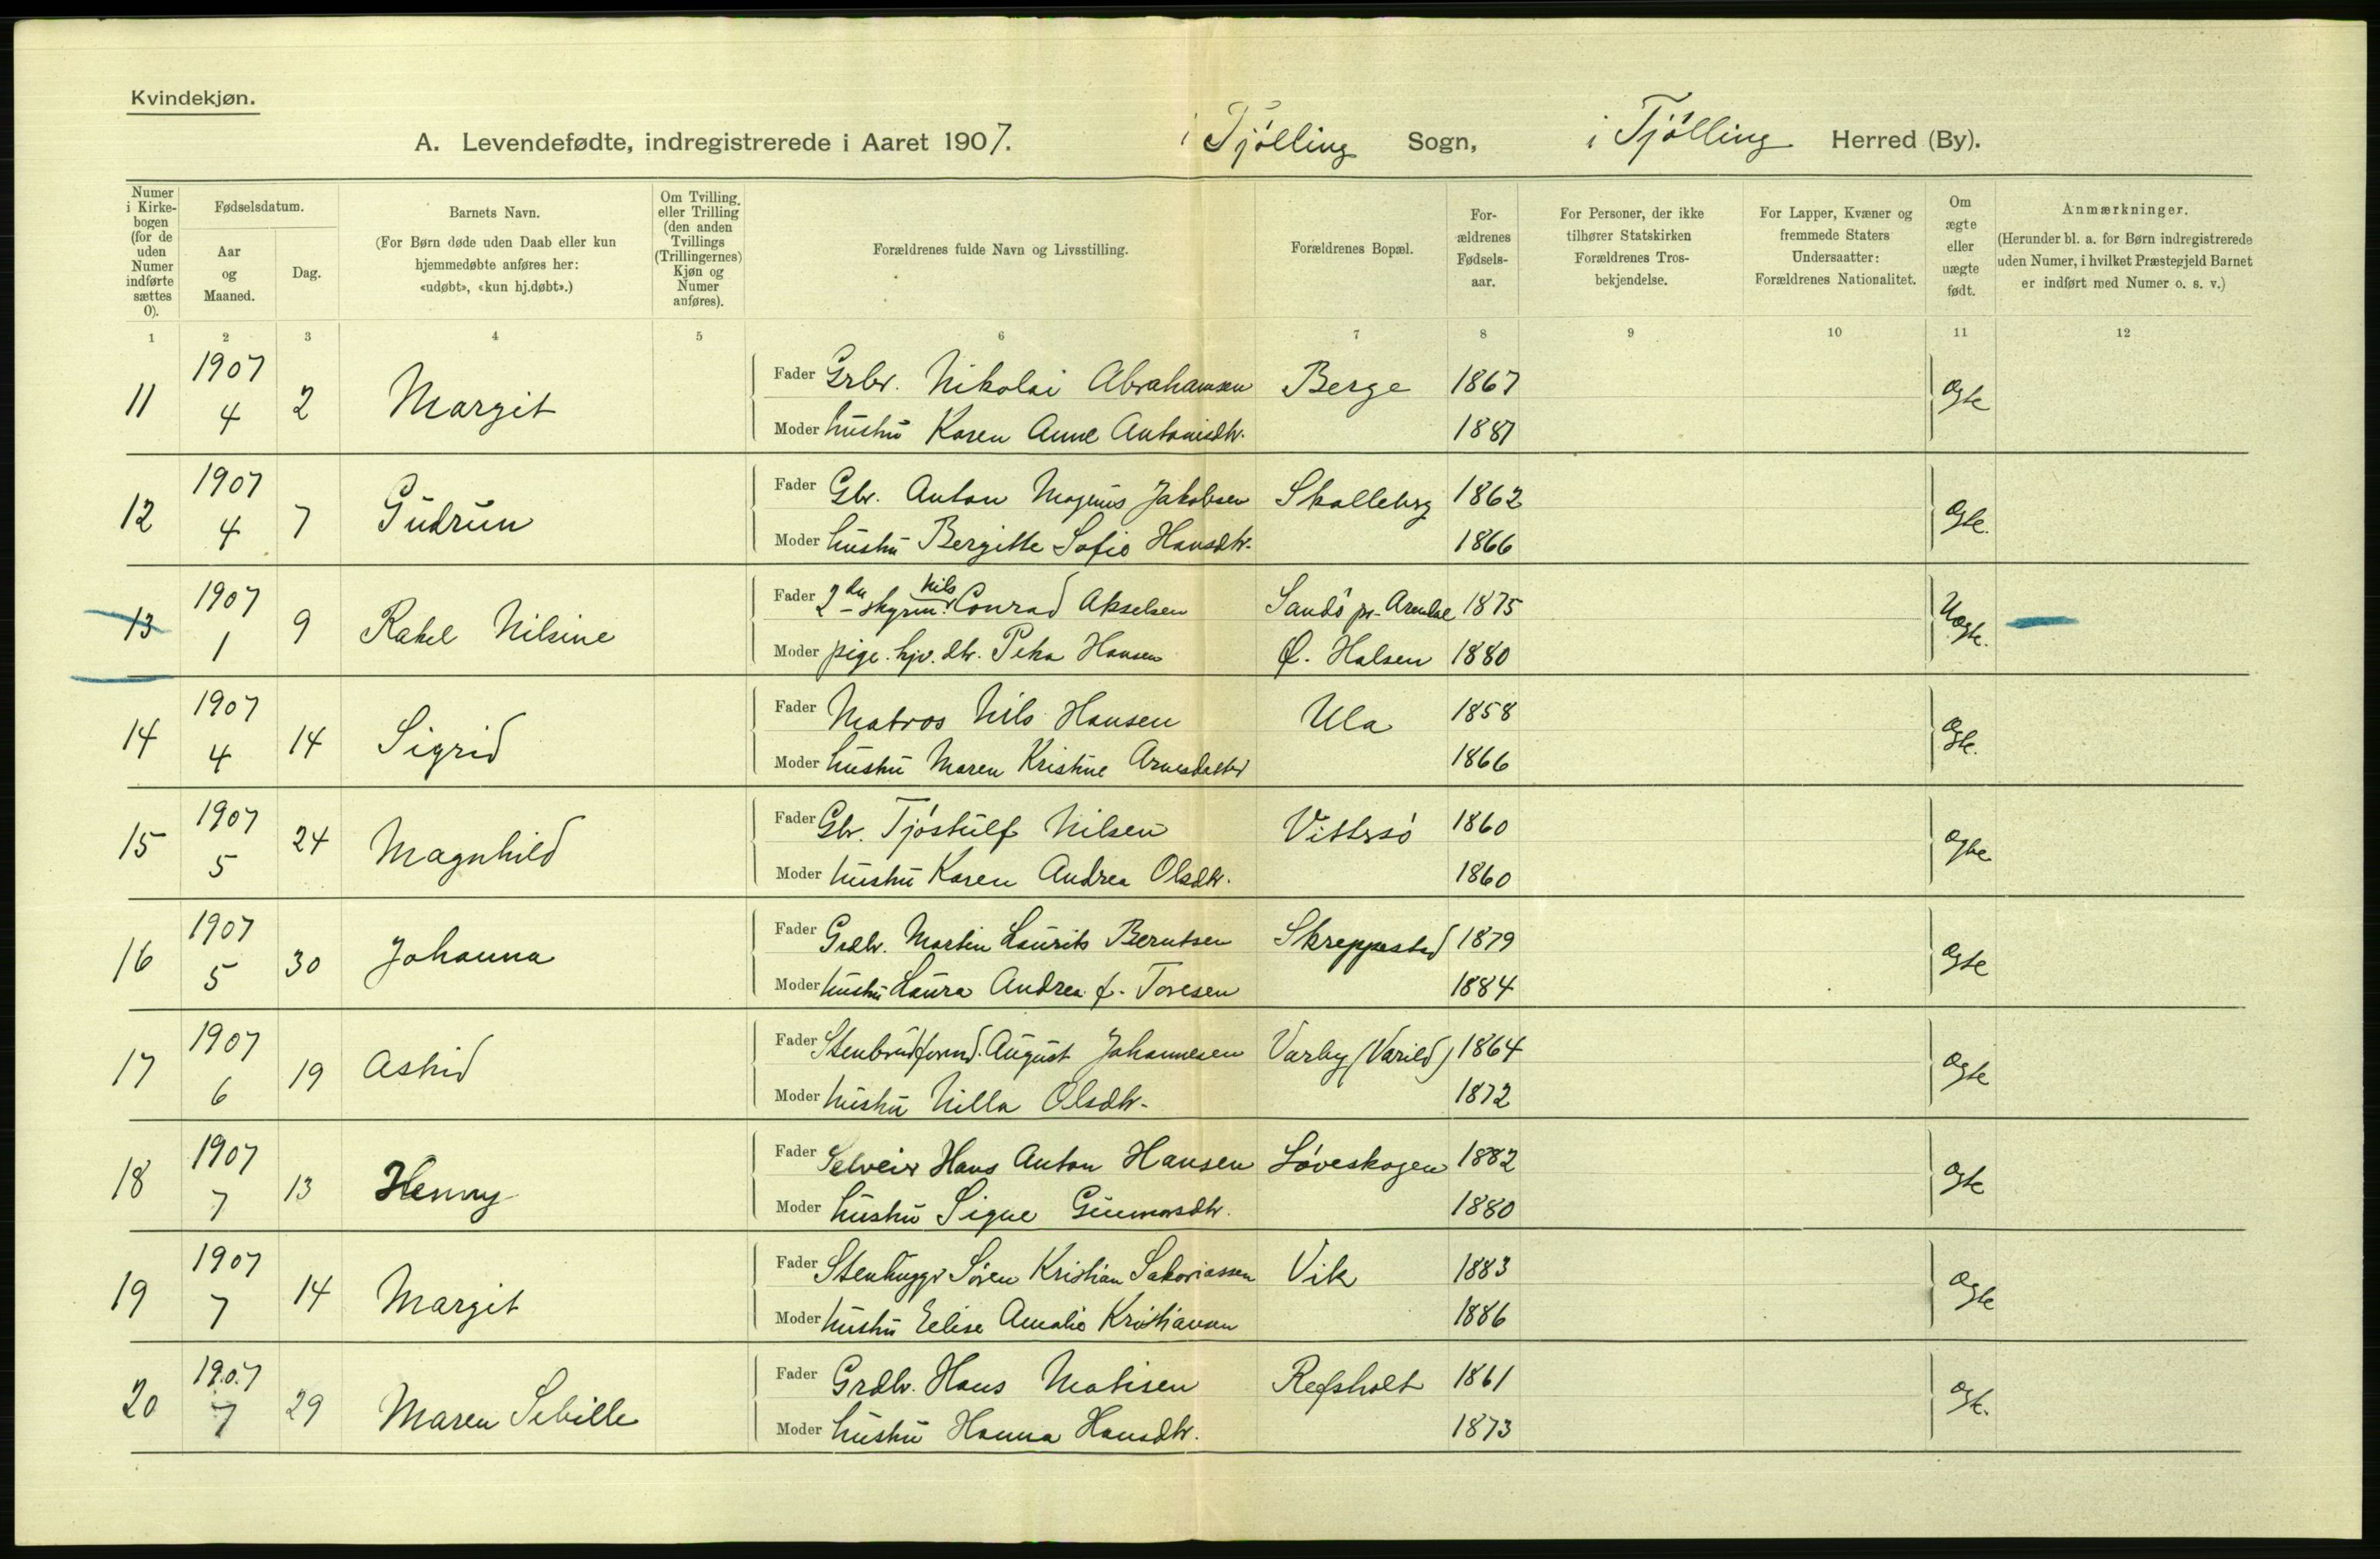 Kvindekjøn.
A. Levendefødte, indregistrerede i Aaret 1907. i Tjölling Sogn, i Tjölling Herred (By).
Numer i Kirkebogen (for de uden Numer indførte sættes 0).
Fødselsdatum.
Aar og Maaned.
Dag.
Barnets Navn.
(For Børn døde uden Daab eller kun hjemmedøbte anføres her: «udøbt», «kun hj.døbt».)
Om Tvilling eller Trilling (den anden Tvillings (Trillingernes) Kjøn og Numer anføres).
Forældrenes fulde Navn og Livsstilling.
Forældrenes Bopæl.
Forældrenes Fødselsaar.
For Personer, der ikke tilhører Statskirken Forældrenes Trosbekjendelse.
For Lapper, Kvæner og fremmede Staters Undersaatter: Forældrenes Nationalitet.
Om ægte eller uægte født.
Anmærkninger.
(Herunder bl. a. for Børn indregistrerede uden Numer, i hvilket Præstegjeld Barnet er indført med Numer o. s. v.)
1 2 3 4 5 6 7 8 9 10 11 12
11 1907 4 2 Margit
Fader Grbr. Nikolai Abrahamsen Berge 1867 ægte
Moder hustru Karen Anne Antonisdtr. 1881
12 1907 4 7 Gudrun
Fader Gbr. Anton Magnus Jakobsen Skalleberg 1862 ægte.
Moder hustru Bergitte Sofie Hansdtr. 1866
13 1907 1 9 Rakel Nilsine
Fader 2den styrm. Nils Conrad Akselsen Sandö pr. Arendal 1875 Uægte.
Moder pige. hjv. dtr. Petra Hansen Ø. Halsen 1880
14 1907 4 14 Sigrid
Fader Matros Nils Hansen Ula 1858 ægte.
Moder hustru Maren Kristine Arnesdatter 1866
15 1907 5 24 Magnhild
Fader Gbr. Tjöstulf Nilsen Vittersö 1860 ægte
Moder hustru Karen Andrea Olsdtr. 1860
16 1907 5 30 Johanna
Fader Grdbr. Martin Laurits Berntsen Skreppestad 1879 ægte
Moder hustru Laura Andrea f. Toresen 1884
17 1907 6 19 Astrid
Fader Stenbrudformd. August Johannesen Varby (Varild) 1864 ægte
Moder hustru Nilla Olsdtr. 1872
18 1907 7 13 Henny
Fader Selveier Hans Anton Hansen Löveskogen 1882 ægte
Moder hustru Signe Gunnarsdtr. 1880
19 1907 7 14 Margit
Fader Stenhugger Sören Kristian Sakariassen Vik 1883 ægte
Moder hustru Elise Amalie Kristiansen 1886
20 1907 7 29 Maren Sebille
Fader Grdbr. Hans Matisen Refsholt 1861 ægte.
Moder hustru Hanna Hansdtr. 1873